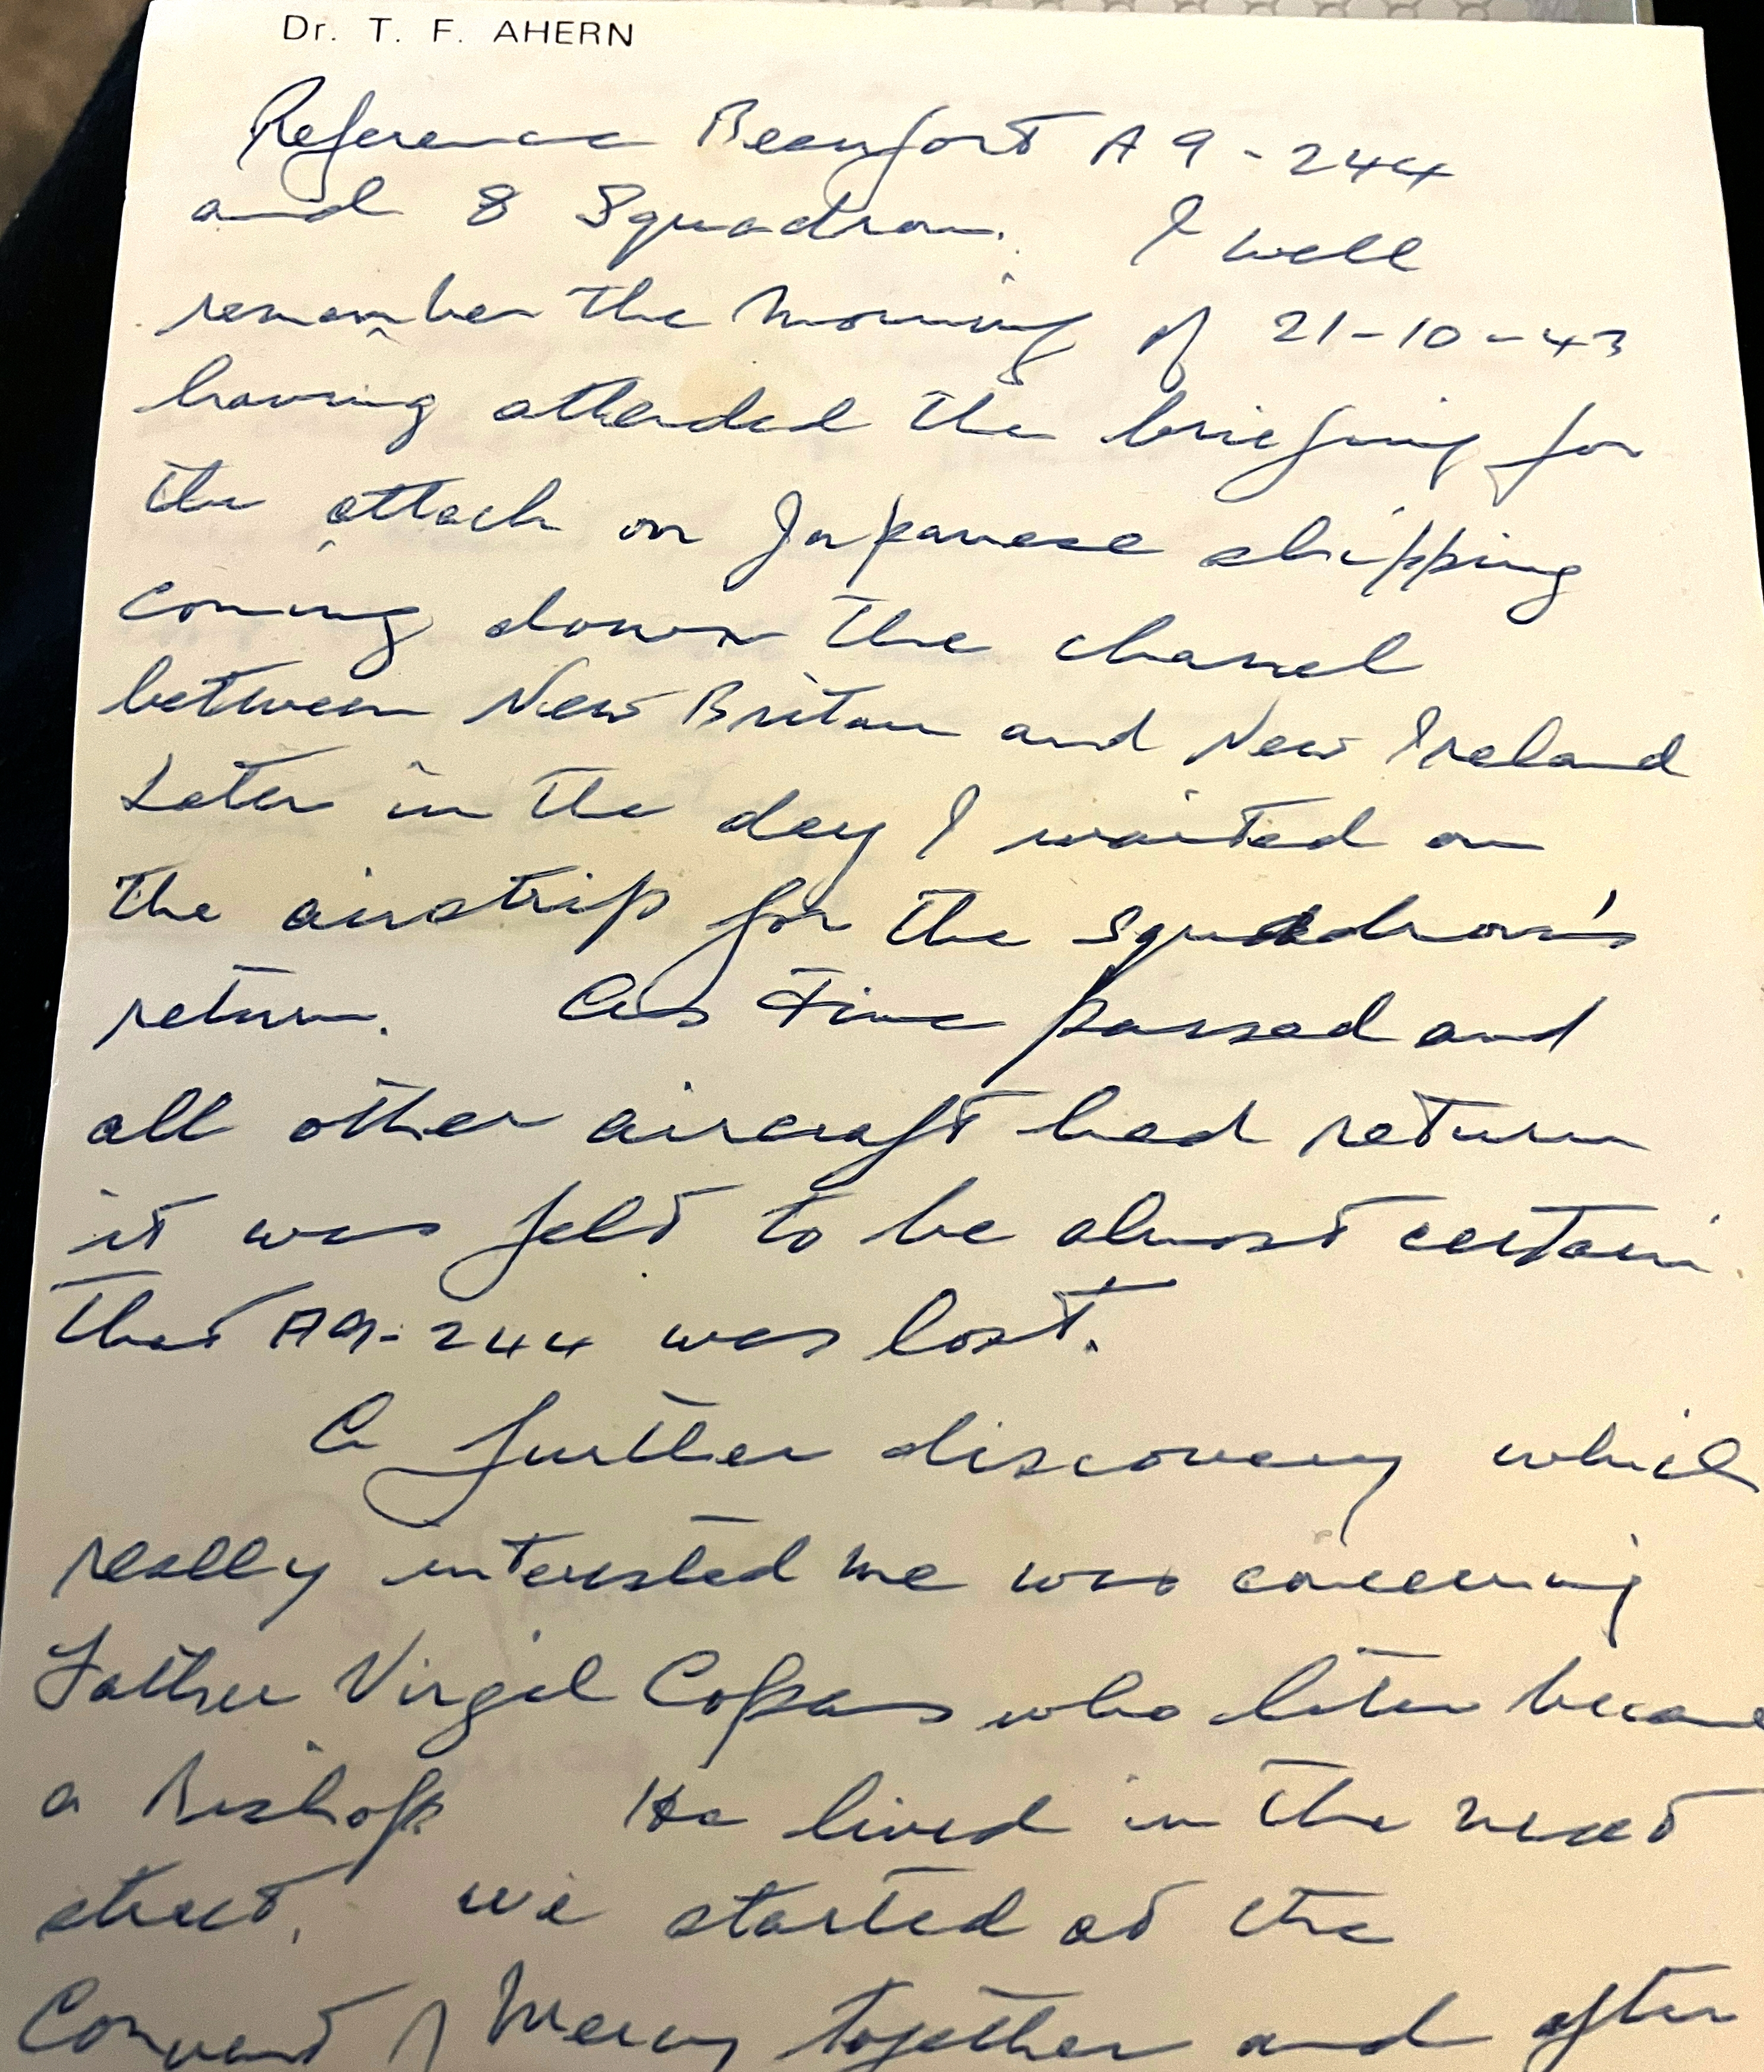 Dr. T. F. AHERN
Reference Beaufort A9-244
and 8 Squadron. I well
remember the morning of 21-10-43
having attended the briefing for
the attack on Japanese shipping
coming down the chanel
between New Britain and New Ireland
Later in the day I waited on
the airstrip for the squadron's
return. As time passed and
all other aircraft had return
it was felt to be almost certain
that A9-244 was lost.
A further discovery which
really interested me was concerning
Father Virgil Copas who later became
a Bishop He lived in the next
street. we started at the
Convent of Mercy together and after